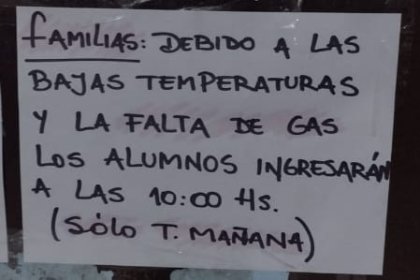 FAMILIAS: DEBIDO A LAS
BAJAS TEMPERATURAS
Y LA FALTA DE GAS
LOS ALUMNOS INGRESARÁN
A LAS 10:00 HS.
(SÓLO T. MAÑANA)